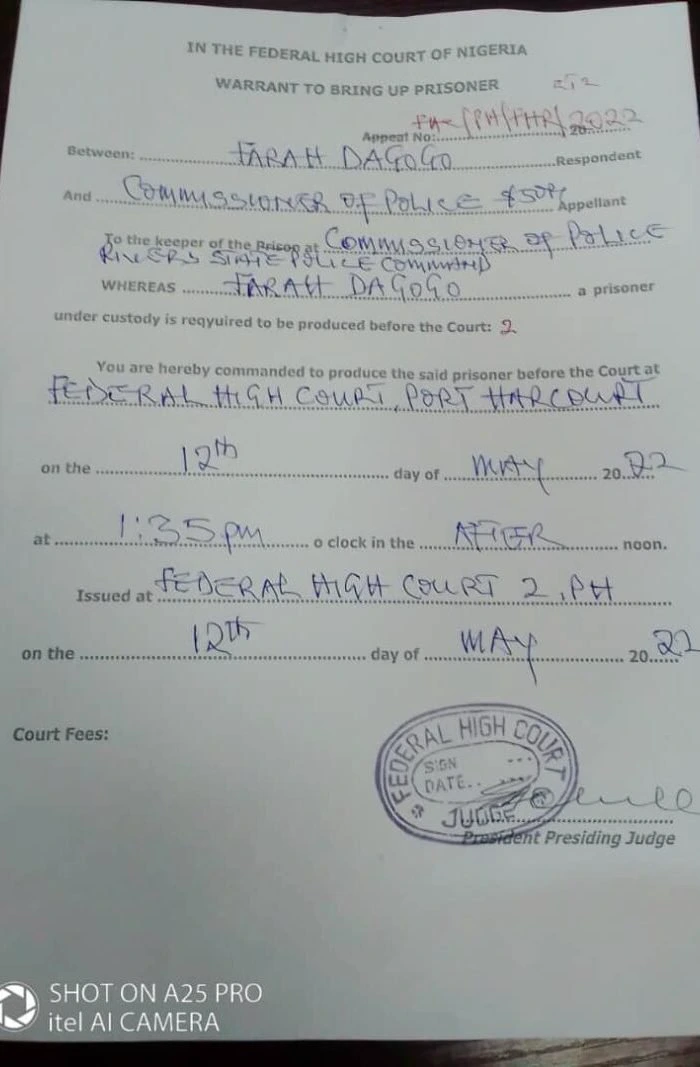 IN THE FEDERAL HIGH COURT OF NIGERIA
WARRANT TO BRING UP PRISONER
Appeal No: /PH/FHR/2022 20
Between: FARAH DAGOGO Respondent
And COMMISSIONER OF POLICE & Appellant
To the keeper of the Prison at COMMISSIONER OF POLICE
RIVERS STATE POLICE COMMAND
WHEREAS FARAH DAGOGO a prisoner
under custody is reqyuired to be produced before the Court: 2
You are hereby commanded to produce the said prisoner before the Court at
FEDERAL HIGH COURT, PORT HARCOURT
on the 12th day of MAY 2022
at 1:35pm o clock in the AFTER noon.
Issued at FEDERAL HIGH COURT 2, PH
on the 12th day of MAY 2022
Court Fees:
FEDERAL HIGH COURT
SIGN
DATE
JUDGE
President Presiding Judge
SHOT ON A25 PRO
itel AI CAMERA